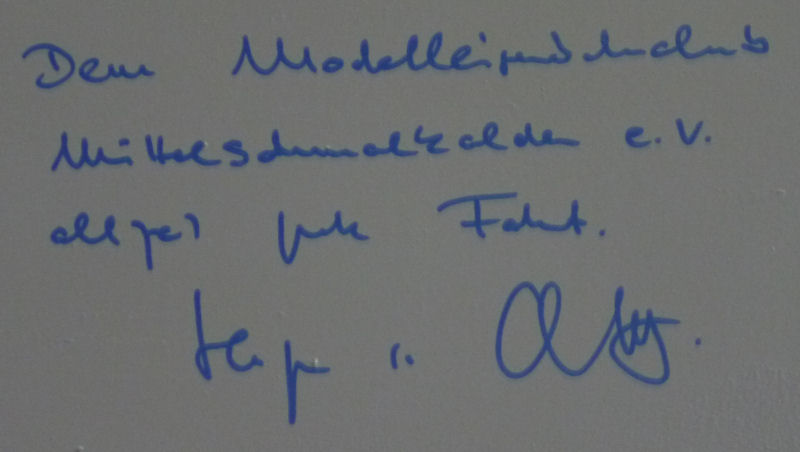 Dem Modelleisenbahnclub
Mittelschmalkalden e.V.
allzeit gute Fahrt.